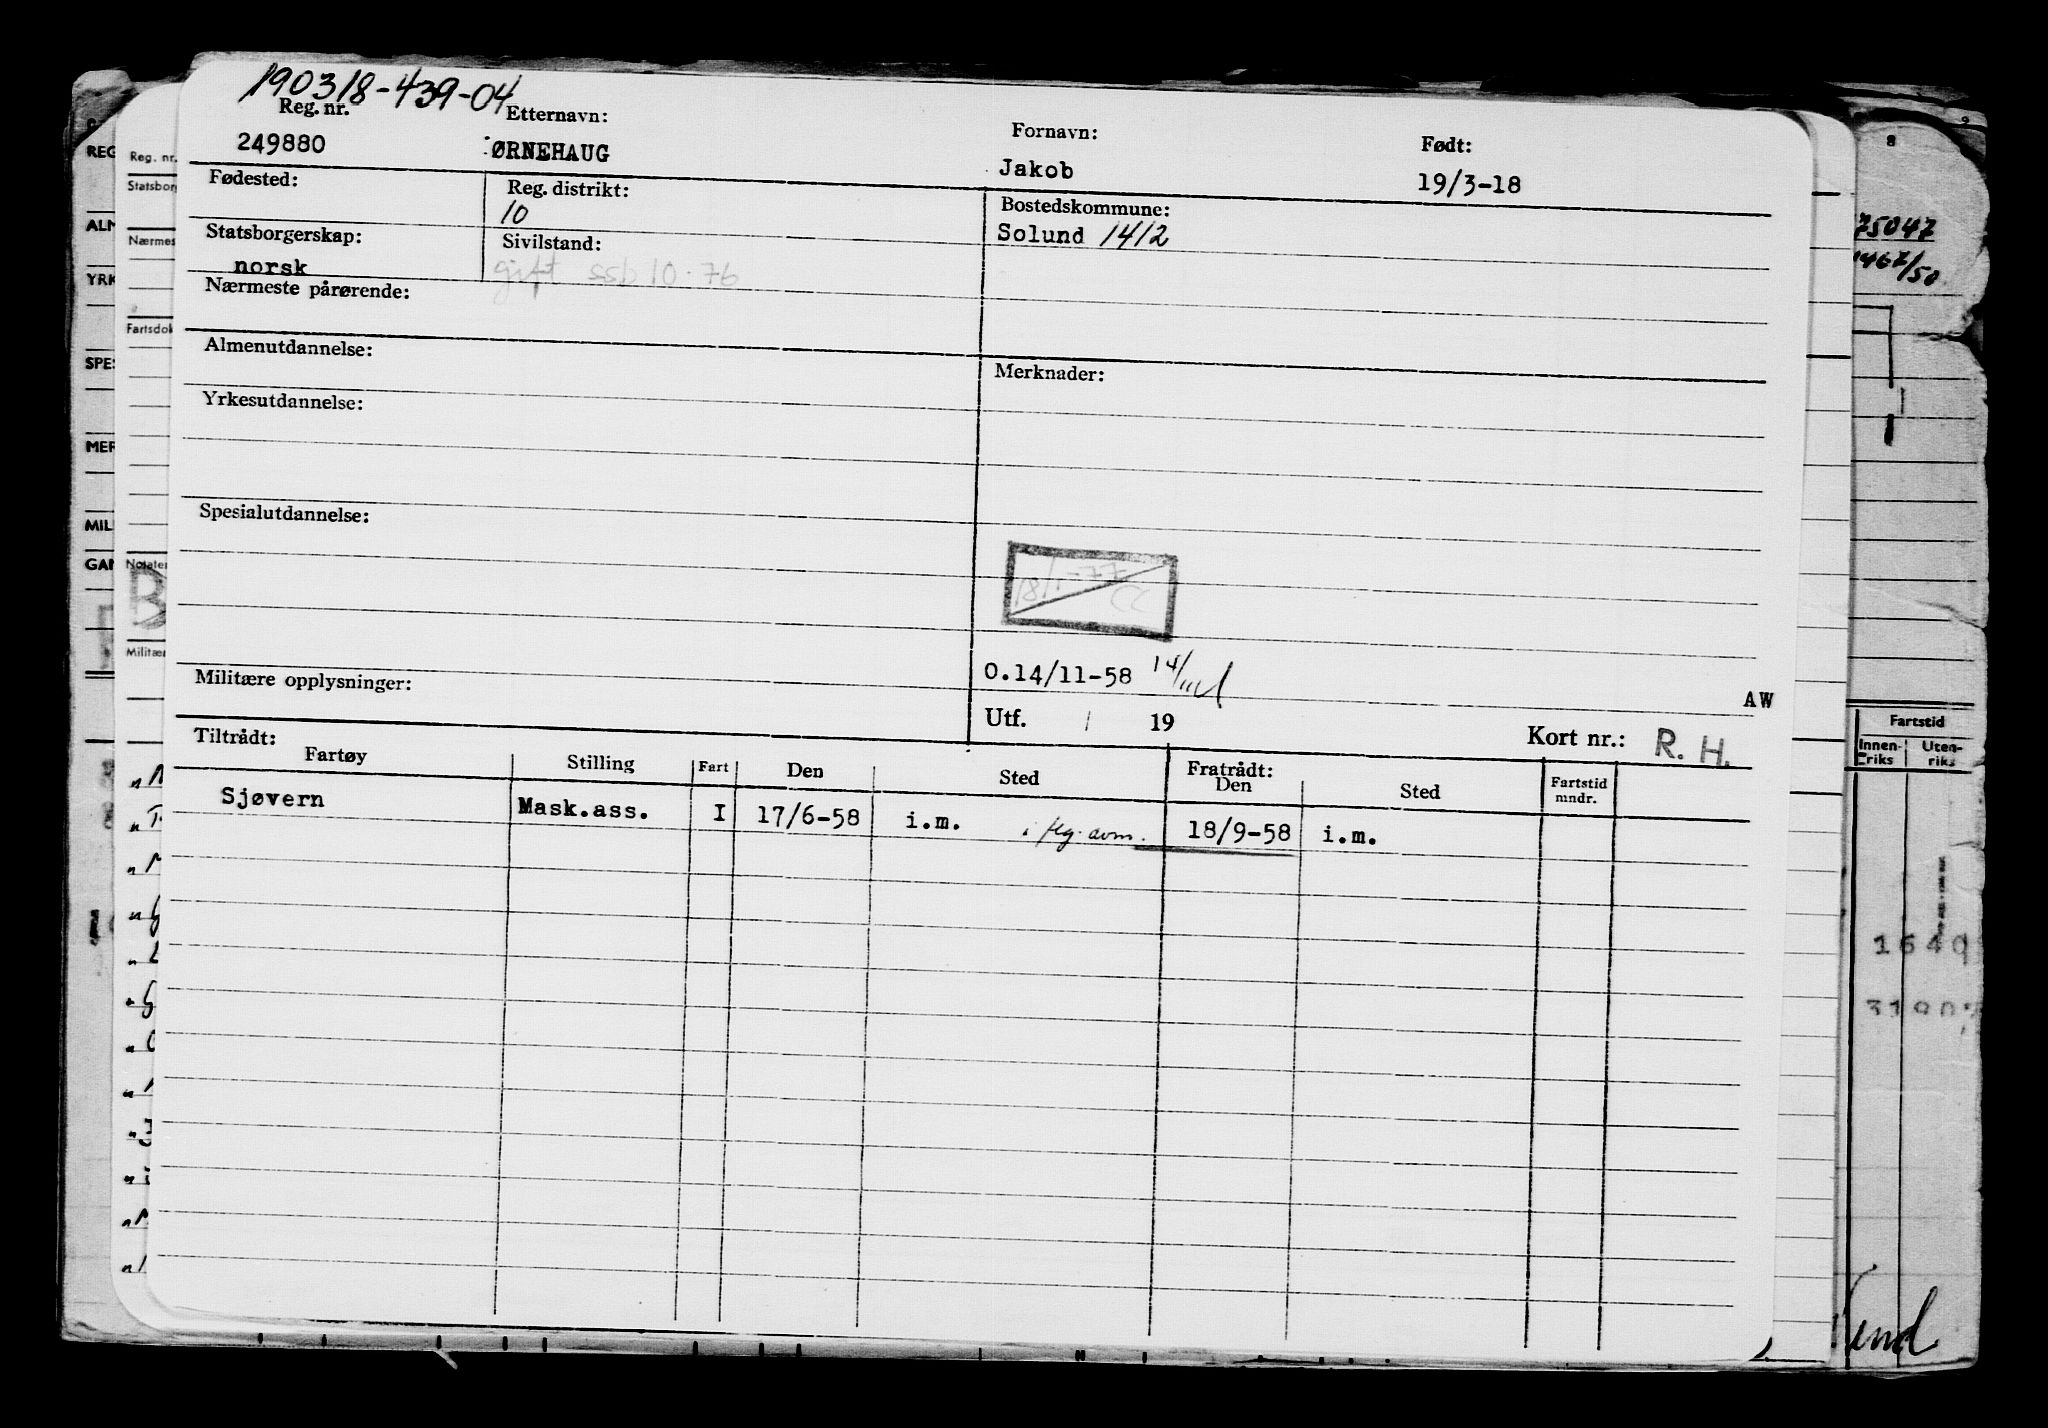 190318-439-04
Reg. nr. Etternavn: Fornavn: Født:
249880 ØRNEHAUG Jakob 19/3-18
Fødested: Reg. distrikt: Bostedskommune:
10 Solund 1412
Statsborgerskap: Sivilstand:
norsk gift ssb 10-76
Nærmeste pårørende:
Almenutdannelse: Merknader:
Yrkesutdannelse:
Spesialutdannelse:
18/1-77 CC
O.14/11-58 14/11
Militære opplysninger: AW
Utf. / 19 Kort nr.: R. H.
Tiltrådt: Fratrådt:
Fartøy Stilling Fart Den Sted Den Sted Fartstid mndr.
Sjøvern Mask.ass. I 17/6-58 i.m. 18/9-58 i.m.
REG
ALM
YRK
SPES
MER
MIL
GAN
Reg. nr.
Statsborg
Nærmes
Fartsdok
Notater
B
Militær
8 9
75047
1467/50
Fartstid
Innen-riks Uten-riks
1649